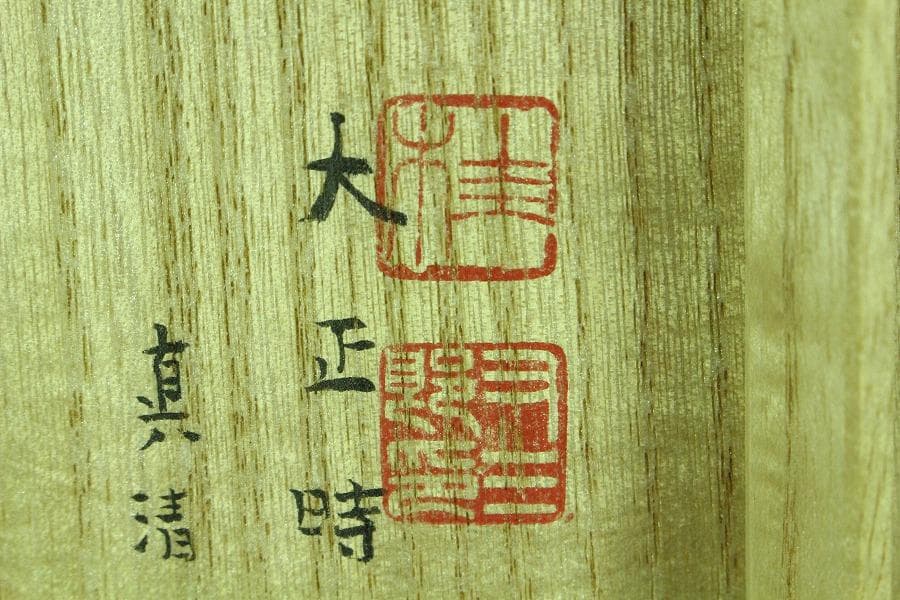 桂
大正時
真清